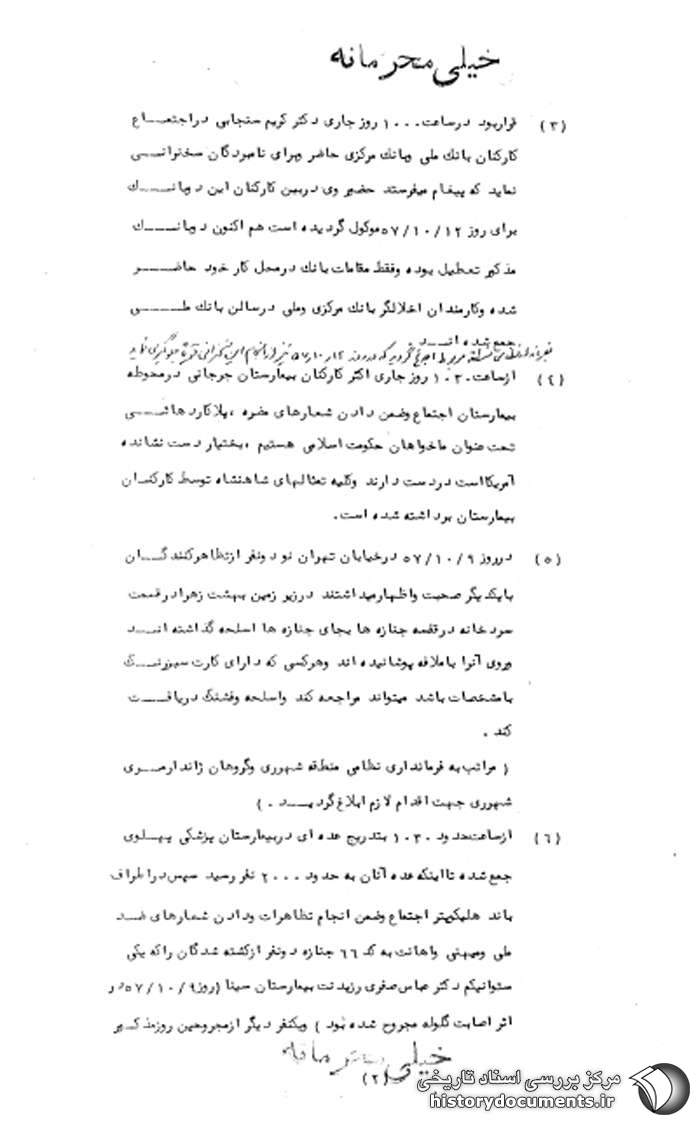 خیلی محرمانه
(۳) قراربود درساعت ۱۰۰۰ روز جاری دکتر کریم سنجابی دراجتمـــاع
کارکنان بانک ملی وبانک مرکزی حاضر وبرای نامبردگان سخنرانـــی
نماید که پیغام میفرستد حضور وی دربین کارکنان این دوبانـــک
برای روز ۵۷/۱۰/۱۲ موکول گردیده است هم اکنون دوبانـــک
مذکور تعطیل بوده وفقط مقامات بانک درمحل کار خود حاضـــر
شده وکارمندان اخلالگر بانک مرکزی وملی درسالن بانک ملـــی
جمع شده انـــد
(۴) ازساعت ۱۰۳۰ روز جاری اکثر کارکنان بیمارستان جرجانی درمحوطه
بیمارستان اجتماع وضمن دادن شعارهای مضره ، پلاکارد هائـــی
تحت عنوان ماخواهان حکومت اسلامی هستیم ، بختیار دست نشانده
آمریکااست دردست دارند وکلیه تمثالهای شاهنشاه توسط کارکنـــان
بیمارستان برداشته شده است.
(۵) درروز ۵۷/۱۰/۹ درخیابان تهران نو دونفر ازتظاهرکنندگـــان
بایکدیگر صحبت واظهارمیداشتند درزیر زمین بهشت زهرادرقسمت
سردخانه درقفسه جنازه ها بجای جنازه ها اسلحه گذاشته انـــد
وروی آنرا باملافه پوشانیده اند وهرکسی که دارای کارت سبزرنـــگ
بامشخصات باشد میتواند مراجعه کند واسلحه وفشنگ دریافـــت
کند .
( مراتب به فرمانداری نظامی منطقه شهرری وگروهان ژاندارمـــری
شهرری جهت اقدام لازم ابلاغ گردیـــد . )
(۶) ازساعت حدود ۱۰۳۰ بتدریج عده ای دربیمارستان پزشکی پهلوی
جمع شده تااینکه عده آنان به حدود ۲۰۰۰ نفر رسید سپس دراطراف
باند هلیکوپتر اجتماع وضمن انجام تظاهرات ودادن شعارهای ضـــد
ملی ومیهنی واهانت به کد ۶۶ جنازه دونفر ازکشته شدگان راکه یکی
ستوانیکم دکتر عباس صفری رزیدنت بیمارستان سینا (روز ۵۷/۱۰/۹ در
اثر اصابت گلوله مجروح شده بود ) ویکنفر دیگر ازمجروحین روزمذکـــور
خیلی محرمانه
(۲)
مرکز بررسی اسناد تاریخی
historydocuments.ir